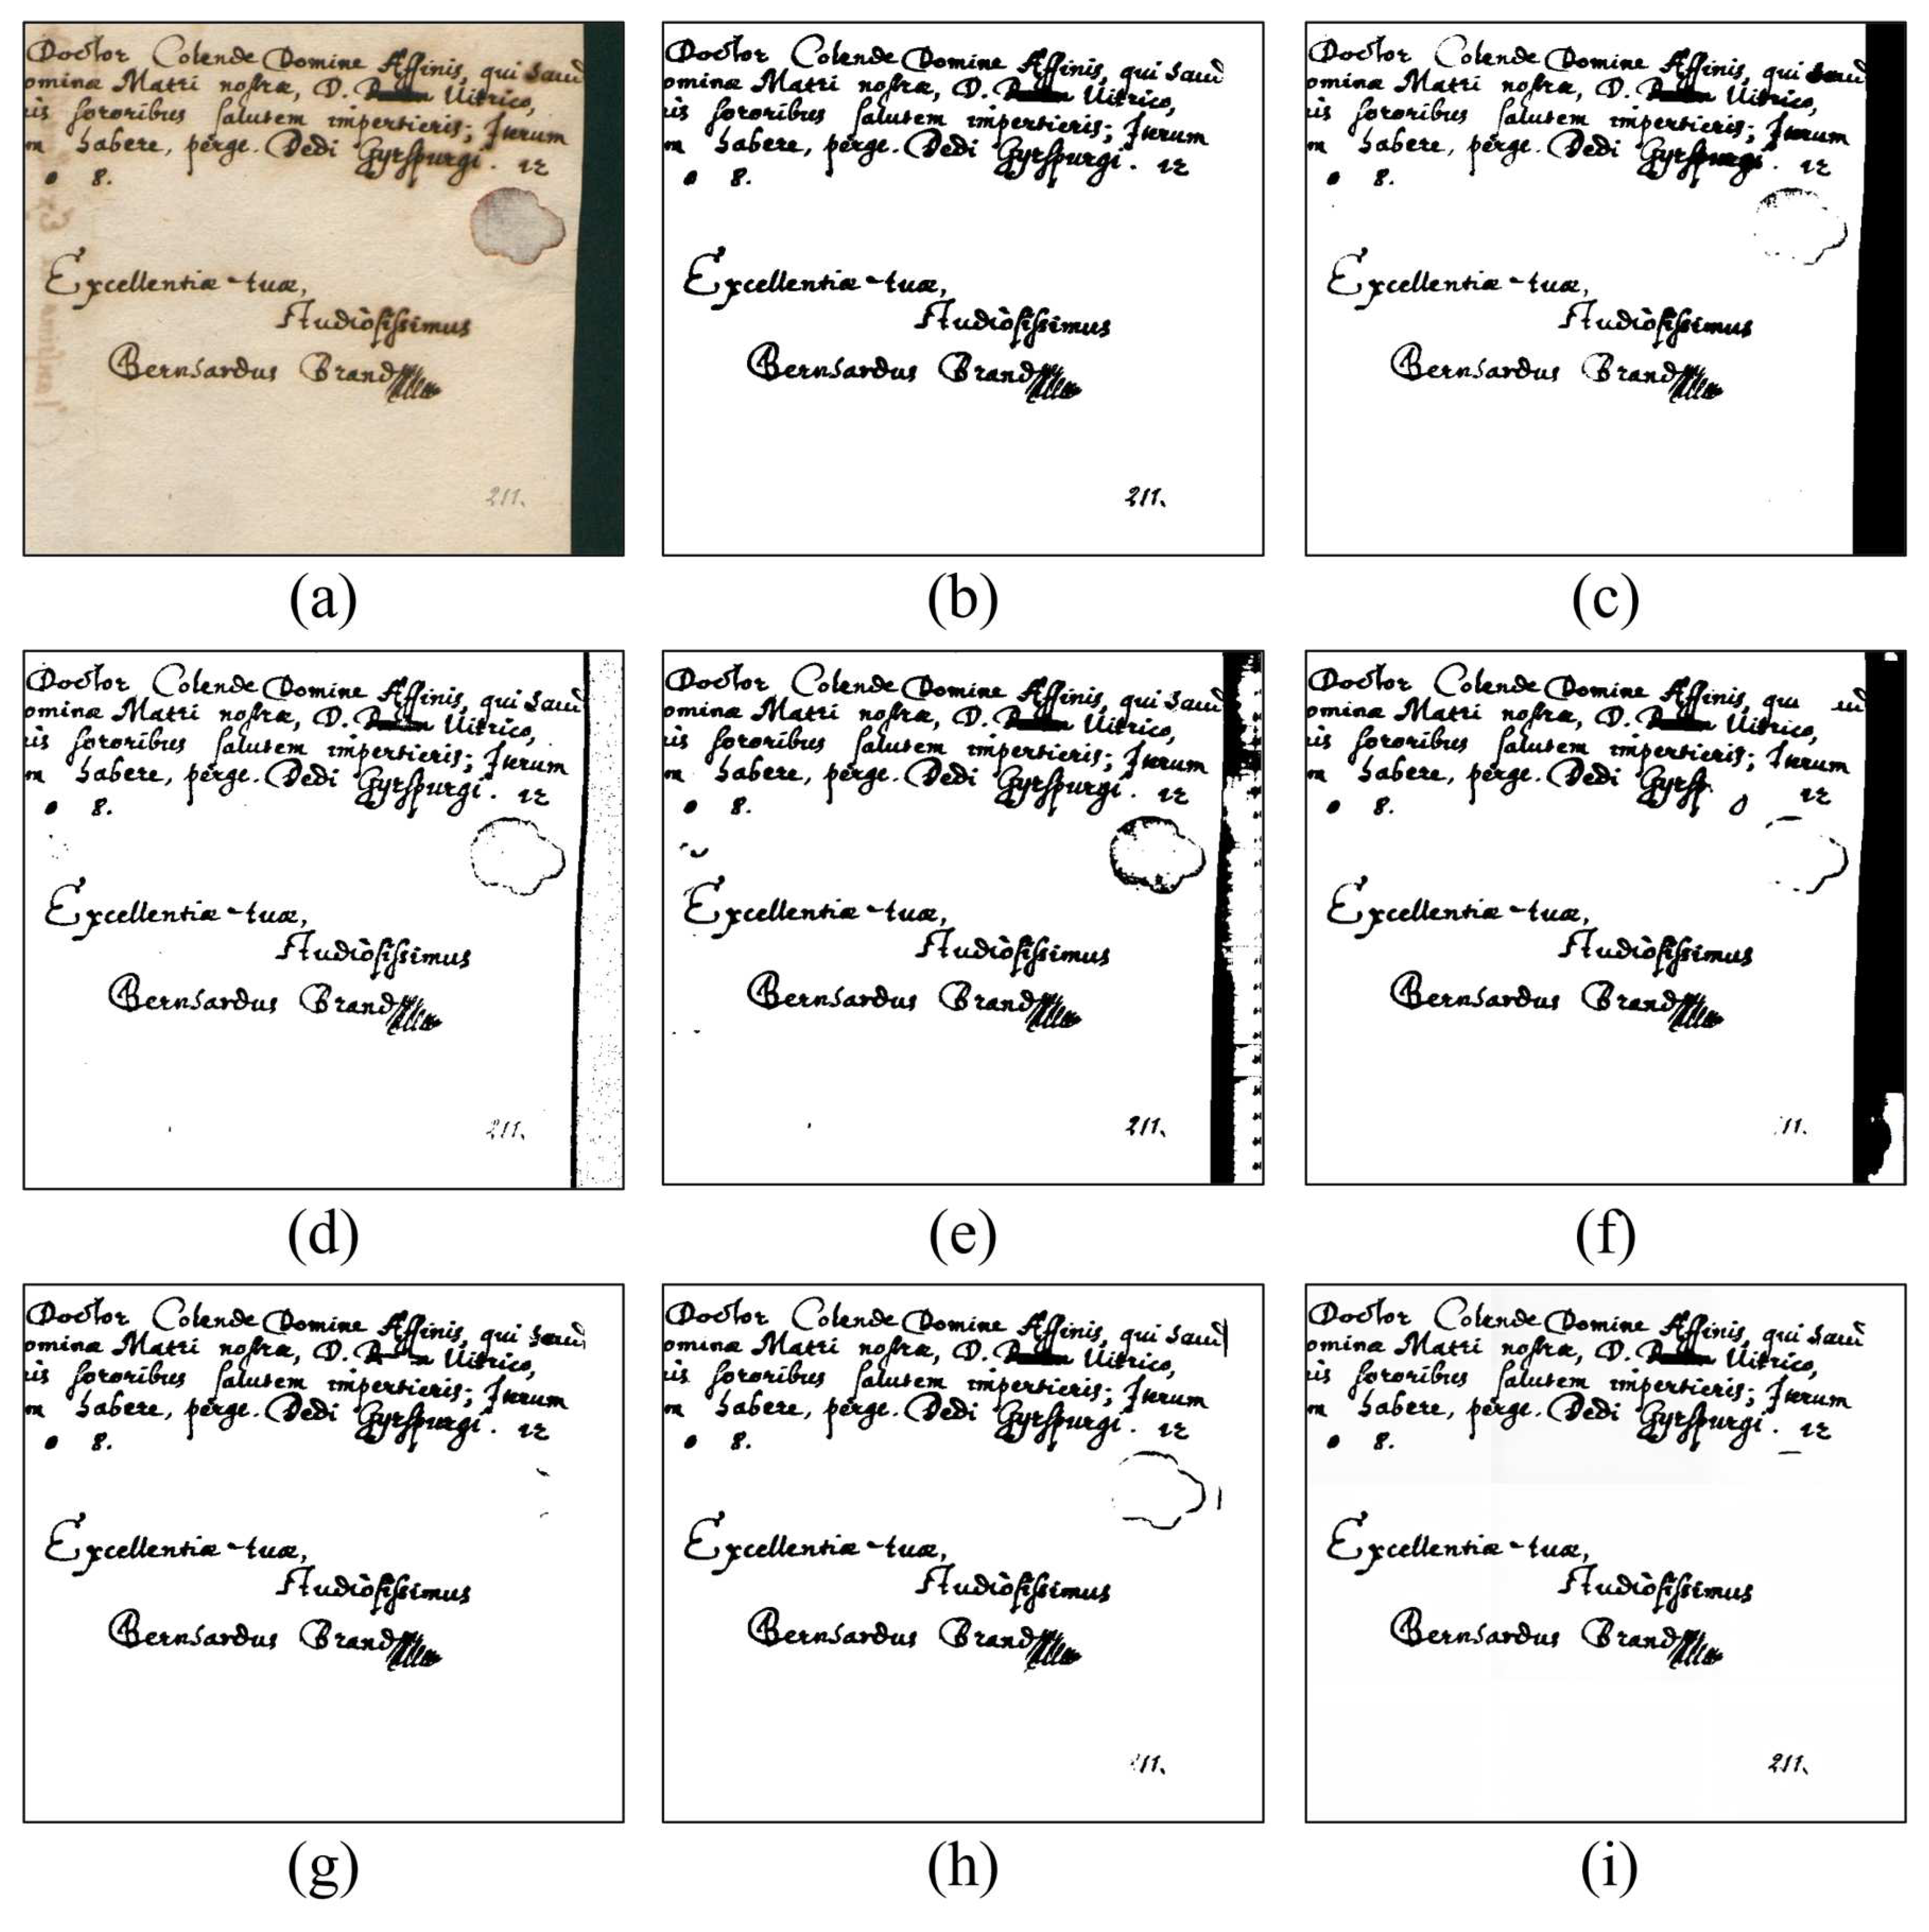 Doctor Colende Domine Affinis, qui
ominæ Matri nostræ, D. Uitrico,
is sororibus salutem impertieris; Iterum
m habere, perge. Dedi Gyrspurgi. 12
8.
Excellentiæ tuæ,
Studiosissimus
Bernhardus Brand
211.
(a)
Doctor Colende Domine Affinis, qui
ominæ Matri nostræ, D. Uitrico,
is sororibus salutem impertieris; Iterum
m habere, perge. Dedi Gyrspurgi. 12
8.
Excellentiæ tuæ,
Studiosissimus
Bernhardus Brand
211.
(b)
Doctor Colende Domine Affinis, qui
ominæ Matri nostræ, D. Uitrico,
is sororibus salutem impertieris; Iterum
m habere, perge. Dedi 12
8.
Excellentiæ tuæ,
Studiosissimus
Bernhardus Brand
(c)
Doctor Colende Domine Affinis, qui
ominæ Matri nostræ, D. Uitrico,
is sororibus salutem impertieris; Iterum
m habere, perge. Dedi Gyrspurgi. 12
8.
Excellentiæ tuæ,
Studiosissimus
Bernhardus Brand
211.
(d)
Doctor Colende Domine Affinis, qui
ominæ Matri nostræ, D. Uitrico,
is sororibus salutem impertieris; Iterum
m habere, perge. Dedi Gyrspurgi. 12
8.
Excellentiæ tuæ,
Studiosissimus
Bernhardus Brand
211.
(e)
Doctor Colende Domine Affinis, qu
ominæ Matri nostræ, D. Uitrico,
is sororibus salutem impertieris; Iterum
m habere, perge. Dedi Gyrsp 12
8.
Excellentiæ tuæ,
Studiosissimus
Bernhardus Brand
11.
(f)
Doctor Colende Domine Affinis, qui
ominæ Matri nostræ, D. Uitrico,
is sororibus salutem impertieris; Iterum
m habere, perge. Dedi Gyrspurgi. 12
8.
Excellentiæ tuæ,
Studiosissimus
Bernhardus Brand
(g)
Doctor Colende Domine Affinis, qui
ominæ Matri nostræ, D. Uitrico,
is sororibus salutem impertieris; Iterum
m habere, perge. Dedi Gyrspurgi. 12
8.
Excellentiæ tuæ,
Studiosissimus
Bernhardus Brand
11.
(h)
Doctor Colende Domine Affinis, qui
ominæ Matri nostræ, D. Uitrico,
is sororibus salutem impertieris; Iterum
m habere, perge. Dedi Gyrspurgi. 12
8.
Excellentiæ tuæ,
Studiosissimus
Bernhardus Brand
211.
(i)